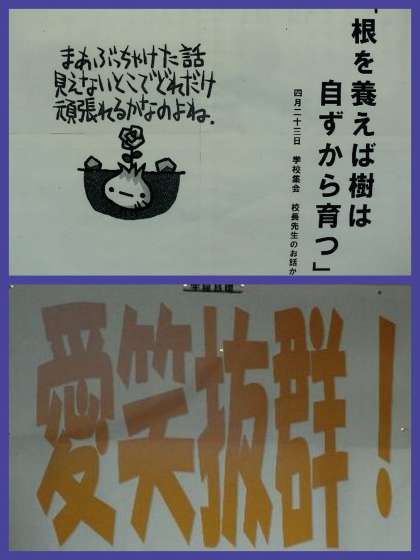 「根を養えば樹は
自ずから育つ」
四月二十三日 学校集会 校長先生のお話か
まあぶっちゃけた話
見えないとこでどれだけ
頑張れるかなのよね.
愛笑抜群!